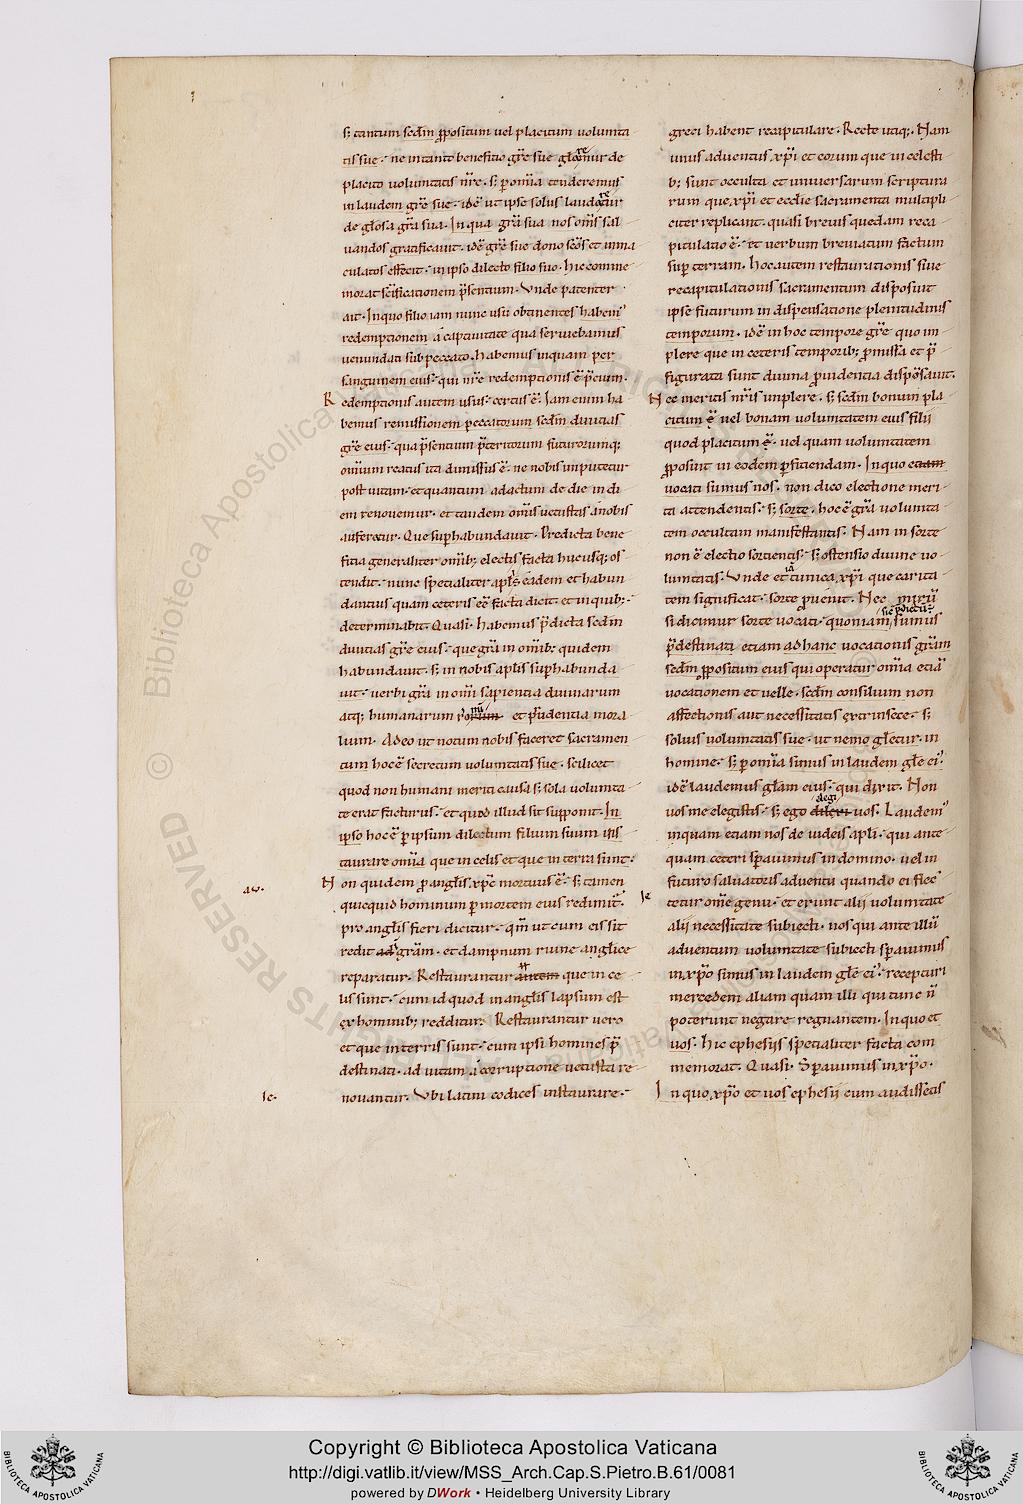 s; tantum scdm̄ ꝓpositum uel placitum uolunta
tis sue. ne in tanto benefitio gr̄e sue glōremur de
placito uoluntatis nr̄e. s; ꝑ om̄ia tenderemus
in laudem gr̄e sue. idē ut ipse solus laudaretur
de glōsa gr̄a sua. In qua gr̄a sua nos om̄s sal
uandos gratificauit. idē gr̄e sue dono sc̄os et inma
culatos effecit. in ipso dilecto filio suo. hic comme
morat sc̄ificationem p̄sentium. Vnde patenter
ait. In quo filio iam nunc usu obtinentes habem᾿
redemptionem a captiuitate qua seruiebamus
uenundati sub peccato. habemus inquam per
sanguinem eius. qui nr̄e redemptionis ē p̄cium.
Redemptionis autem usus. certus ē. Iam enim ha
bemus remissionem peccatorum scdm̄ diuitias
gr̄e eius. qua p̄sentium p̄teritorum futurorumq;
omnium reatus ita dimissus ē. ne nobis inputetur
post uitam. et quantum ad actum de die in di
em renouemur. et tandem om̄is uetustas a nobis
auferetur. Que suꝑhabundauit. Predicta bene
fitia generaliter om̄ib; electis facta hucusq; os
tendit. nunc specialiter apl̄is eadem et habun
dantius quam ceteris eē facta dicit. et in quib;
determinabit. Quasi. habemus p̄dicta scdm̄
diuitias gr̄e eius. que gr̄a in om̄ib; quidem
habundauit. s; in nobis aplīs suꝑhabunda
uit. uerbi gr̄a in om̄i sapientia diuinarum
atq; humanarum et prudentia mora
lium. Adeo ut notum nobis faceret sacramen
tum hoc ē secretum uoluntatis sue. scilicet
quod non humani merita causa s; sola uolunta
te erat facturus. et quod illud sit supponit. In
ipso hoc ē ꝑ ipsum dilectum filium suum ins
taurare om̄ia que in celis et que in terra sunt.
Non quidem ꝓ angl̄is xp̄c mortuus ē. s; tamen
quicquid hominum ꝑ mortem eius redimit᾿.
pro angl̄is fieri dicitur. qm̄ ut cum eis sit
redit ad gr̄am. et dampnum ruine anglice
reparatur. Restaurantur autem que in ce
lis sunt. cum id quod in angl̄is lapsum est
ex hominib; redditur. Restaurantur uero
et que in terris sunt. cum ipsi homines p̄
destinati. ad uitam a corruptione uetusta re
nouantur. Vbi latini codices instaurare.
au.
Ie.
greci habent recapitulare. Recte utiq;. Nam
unus aduentus xp̄i et eorum que in celesti
b; sunt occulta et uniuersarum scriptura
rum que xp̄i et ecclīe sacramenta multipli
citer replicant. quasi breuis quedam reca
pitulatio ē. et uerbum breuiatum factum
suꝑ terram. hoc autem restaurationis siue
recapitulationis sacramentum disposuit
ipse futurum in dispensatione plenitudinis
temporum. idē in hoc tempore gr̄e quo im
plere que in ceteris temporib; ꝓmissa et p̄
figurata sunt diuina ꝓuidentia disposauit.
Nec meritis nr̄is implere. s; scdm̄ bonum pla
citum ē uel bonam uoluntatem eius filii
quod placitum ē. uel quam uoluntatem
ꝓposuit in eodem ꝑficiendam. In quo etiam
uocati sumus nos. non dico electione meri
ta attendentis. s; sorte. hoc ē gr̄a uolunta
tem occultam manifestantis. Nam in sorte
non ē electio sortientis. s; ostensio diuine uo
luntatis. Vnde et tunica xp̄i que carita
tem significat. sorte ꝓuenit. Nec mirū
si dicimur sorte uocati. quoniam sic p̄dictū ē sumus
p̄destinati etiam ad hanc uocationis gr̄am
scdm̄ ꝓpositum eius qui operatur om̄ia etiā
uocationem et uelle. scdm̄ consilium non
affectionis aut necessitatis extrinsece. s;
solius uoluntatis sue. ut nemo glēt̄ur in
homine. s; ꝑ om̄ia simus in laudem gl̄e ei᾿.
idē laudemus gl̄am eius. qui dixit. Non
uos me elegistis. s; ego elegi dilexi uos. Laudem᾿
inquam etiam nos de iudeis apli. qui ante
quam ceteri sperauimus in domino. uel in
futuro saluatoris aduentu quando ei flec
tetur om̄e genu. et erunt alii uoluntate
alii necessitate subiecti. nos qui ante illū
aduentum uoluntate subiecti sperauimus
in xp̄o simus in laudem gl̄e ei᾿. recepturi
mercedem aliam quam illi qui tunc n̄
poterunt negare regnantem. In quo et
uos. hic ephesiis specialiter facta com
memorat. Quasi. Sperauimus in xp̄o.
In quo xp̄o et uos ephesii cum audissetis
Ie
Copyright © Biblioteca Apostolica Vaticana
http://digi.vatlib.it/view/MSS_Arch.Cap.S.Pietro.B.61/0081
powered by DWork • Heidelberg University Library
BIBLIOTECA APOSTOLICA VATICANA
BIBLIOTECA APOSTOLICA VATICANA